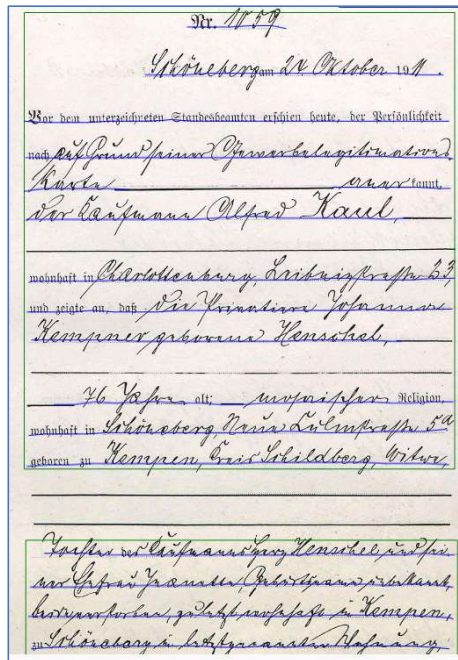 Nr. 1059
Schöneberg am 24. Oktober 1911.
Vor dem unterzeichneten Standesbeamten erschien heute, der Persönlichkeit
nach auf Grund seiner Gewerbelegitimations-
karte anerkannt,
der Kaufmann Alfred Kaul,
wohnhaft in Charlottenburg, Leibnizstraße 33,
und zeigte an, daß die Privatiere Johanna
Kempner geborene Henschel,
76 Jahre alt, mosaischer Religion,
wohnhaft in Schöneberg, Neue Culmstraße 5a
geboren zu Kempen, Kreis Schildberg, Witwe,
Tochter des Kaufmanns Herz Henschel und sei-
ner Ehefrau Jeanette, Geburtsname unbekannt,
beide verstorben, zuletzt wohnhaft in Kempen,
zu Schöneberg in letztgenannter Wohnung,